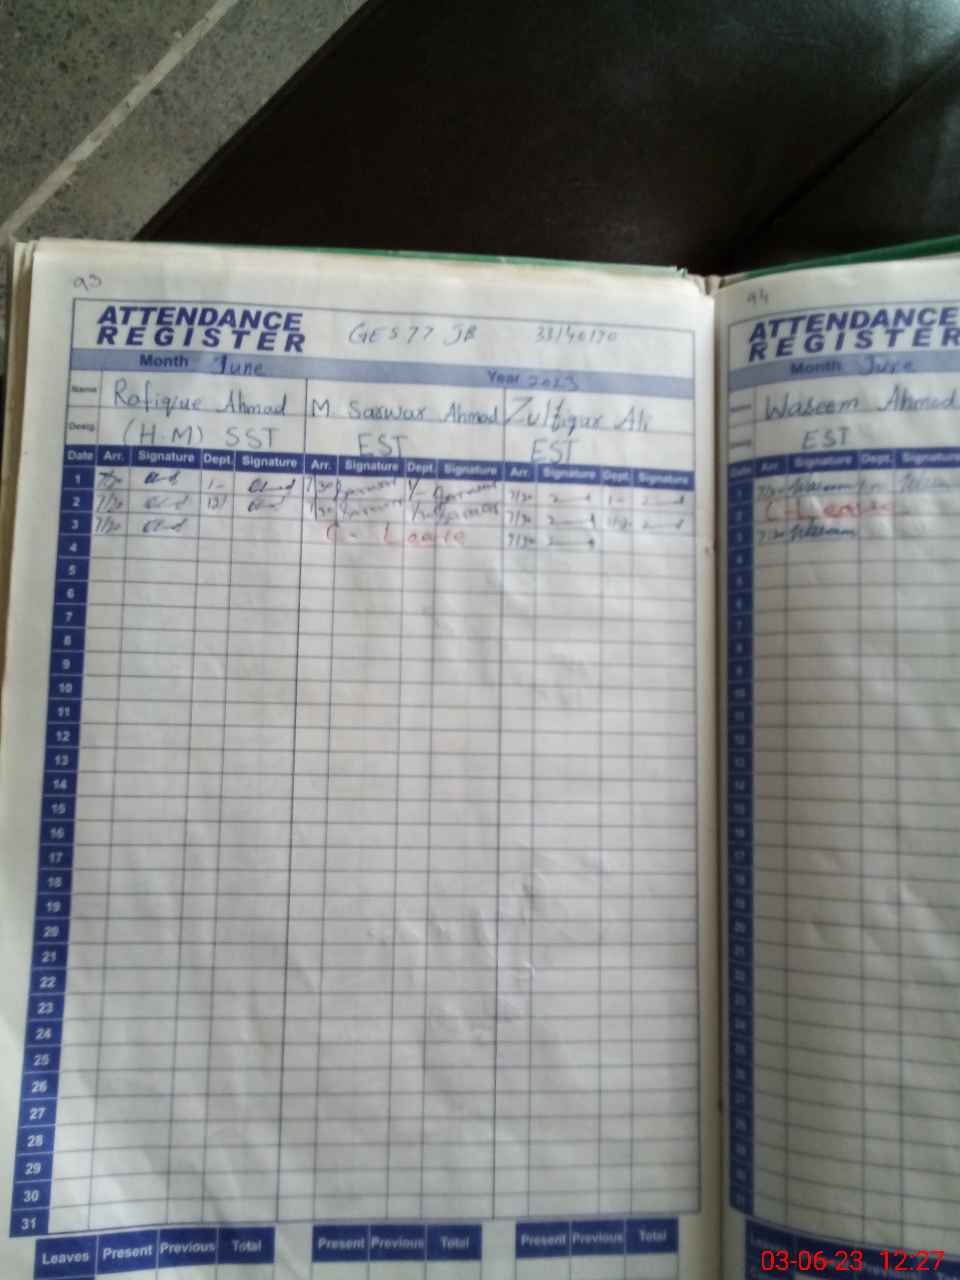 93
ATTENDANCE
REGISTER
GES 77 JB
Month June
Year 2023
Name Rafique Ahmad M Sarwar Ahmad Zulfiqar Ali
Desig. (H.M) SST EST EST
Date Arr. Signature Dept. Signature Arr. Signature Dept. Signature Arr. Signature Dept. Signature
1 7/30 1- 7/30 1/- 7/30 1-
2 7/30 7/30 7/30
3 7/30 C- Leave 7/30
4
5
6
7
8
9
10
11
12
13
14
15
16
17
18
19
20
21
22
23
24
25
26
27
28
29
30
31
Leaves Present Previous Total Present Previous Total Present Previous Total
94
ATTENDANCE
REGISTER
Month June
Name Waseem Ahmad
Desig. EST
Date Arr. Signature Dept. Signature
1 7/30 Waseem
2 C-Leave
3 7/30 Waseem
03-06-23 12:27